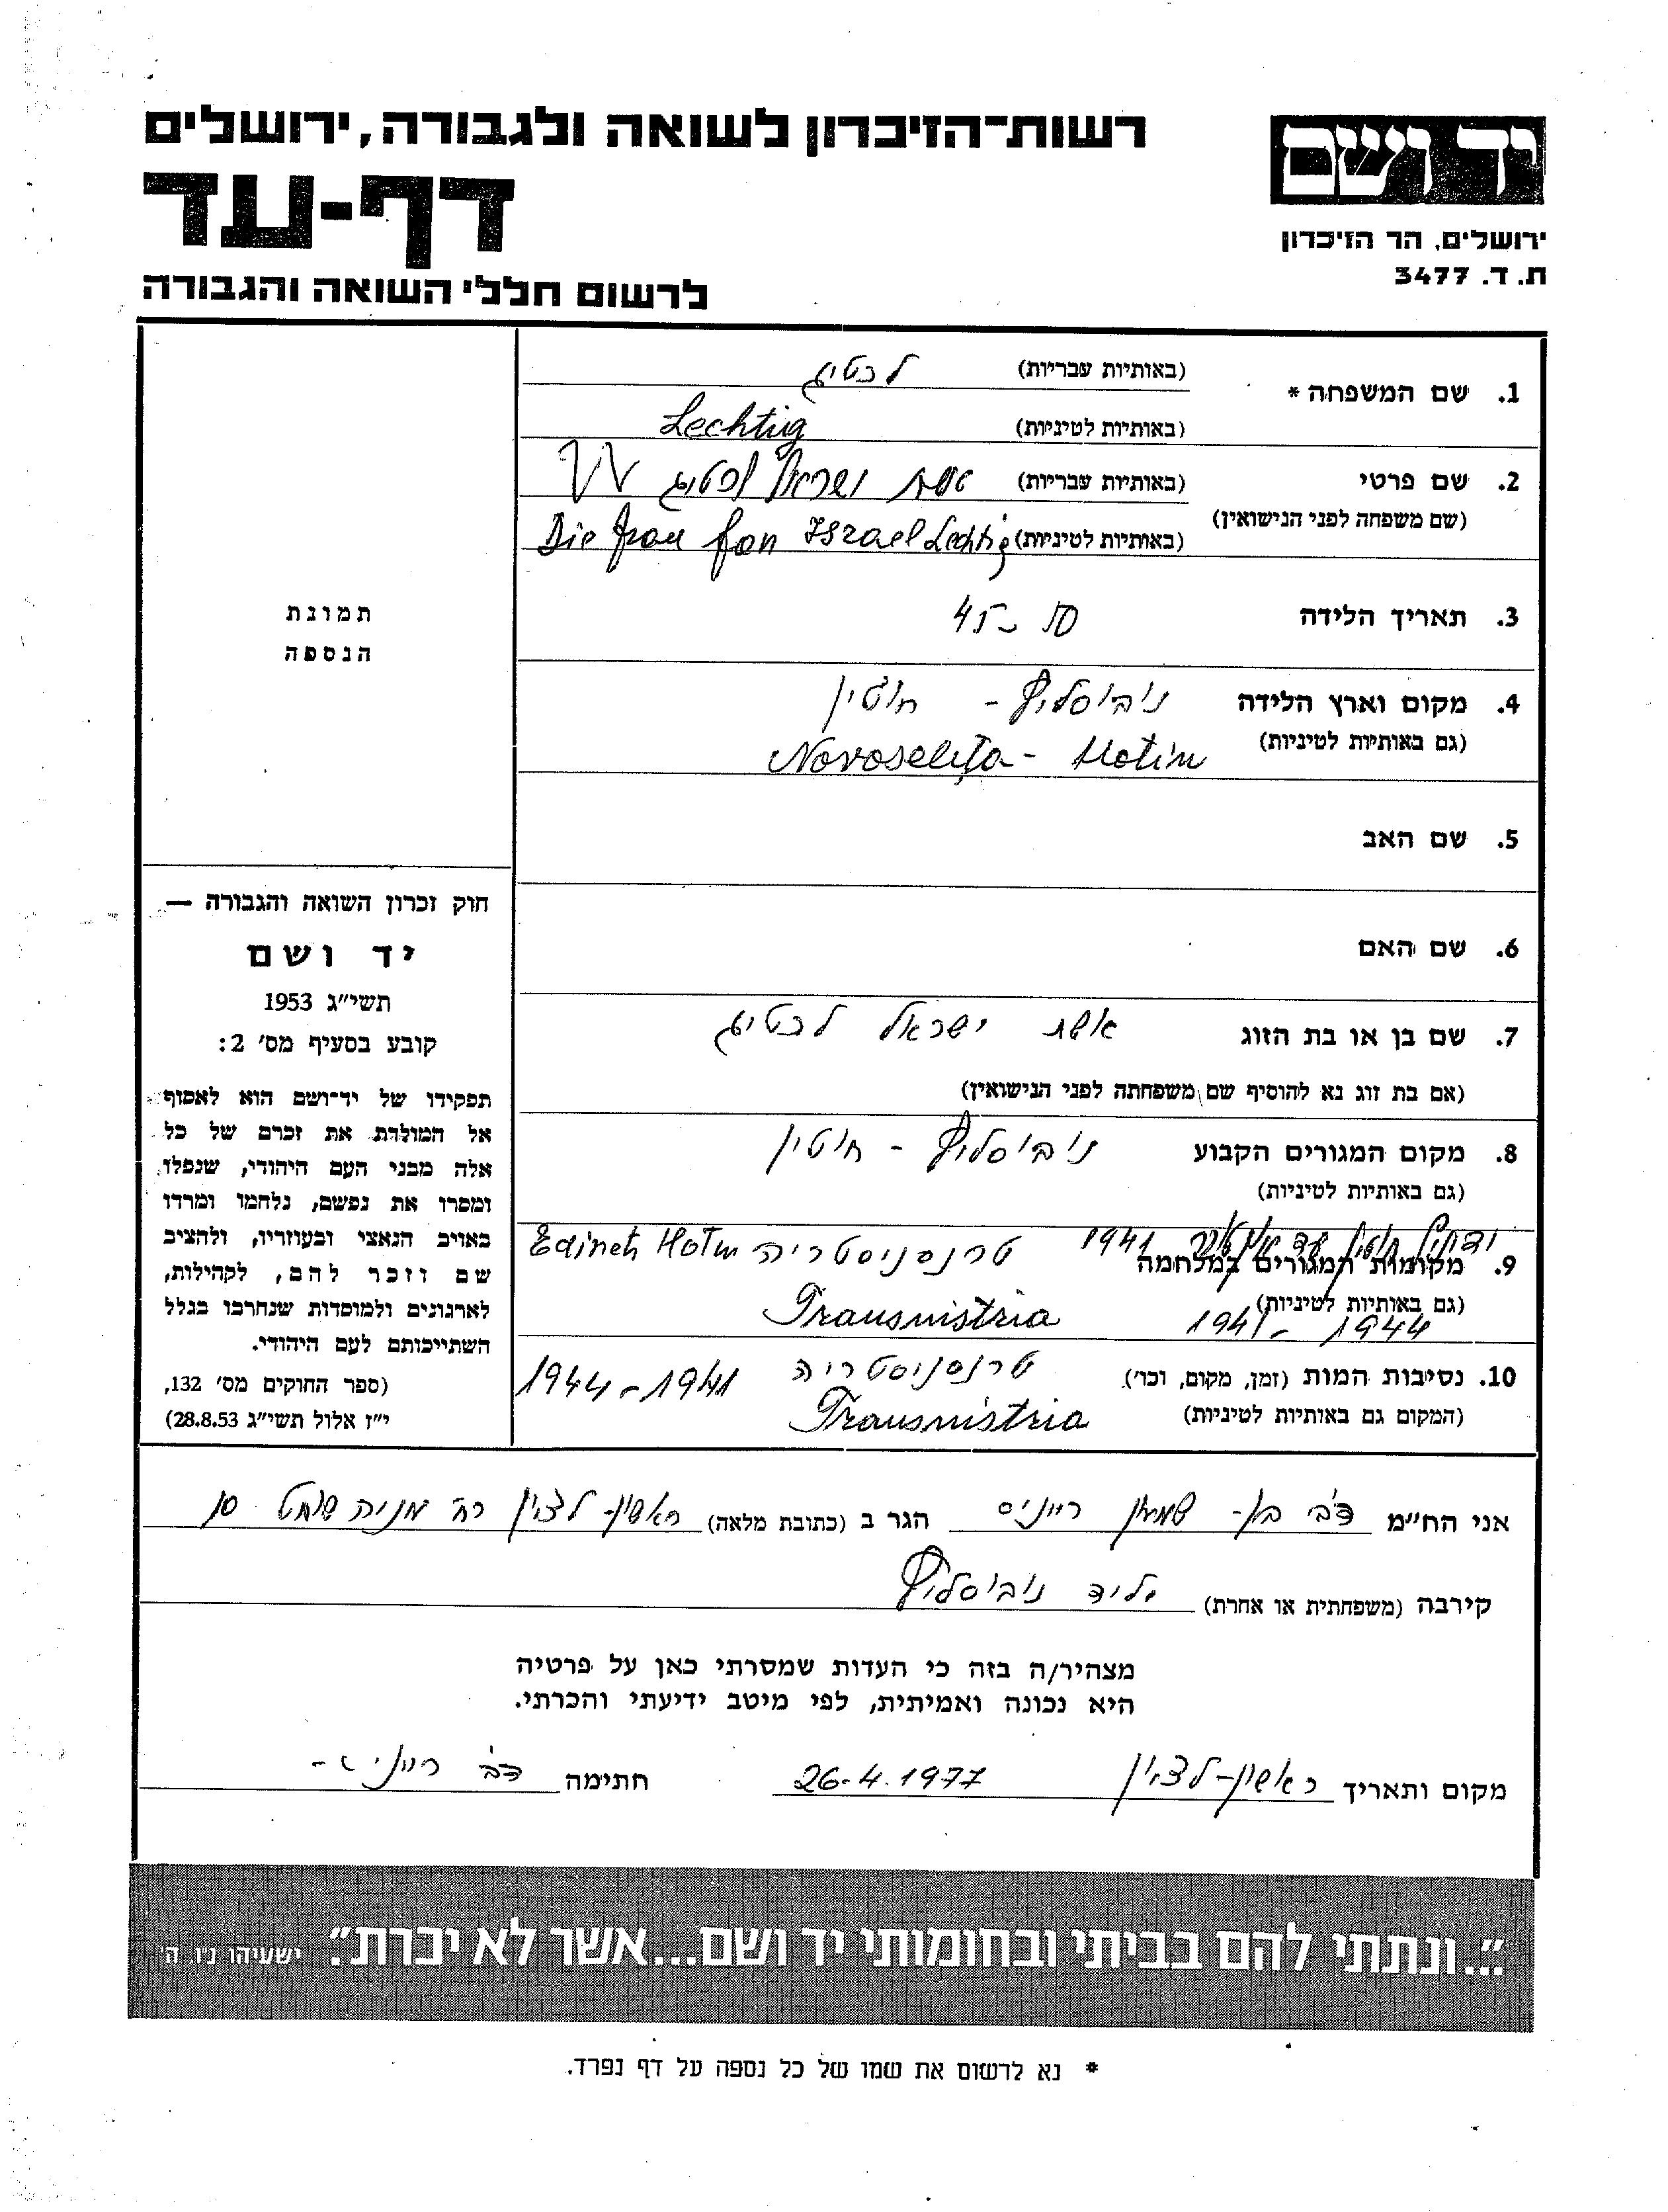 רשות־הזיכרון לשואה ולגבורה, ירושלים
יד ושם
דף-עד
ירושלים, הר הזיכרון
ת. ד. 3477
לרשום חללי השואה והגבורה
1. שם המשפחה * (באותיות עבריות) לכטיג
(באותיות לטיניות) Lechtig
2. שם פרטי (באותיות עבריות) אשת ישראל לכטיג
(שם משפחה לפני הנישואין)
(באותיות לטיניות) Die frau fon Israel Lechtig
3. תאריך הלידה 45
4. מקום וארץ הלידה נובוסליץ - חוטין
(גם באותיות לטיניות) Novoseliţa - Hotin
5. שם האב
6. שם האם
7. שם בן או בת הזוג אשת ישראל לכטיג
(אם בת זוג נא להוסיף שם משפחתה לפני הנישואין)
8. מקום המגורים הקבוע נובוסליץ - חוטין
(גם באותיות לטיניות)
9. מקומות המגורים במלחמה 1941 טרנסניסטריה Edineti Hotin
(גם באותיות לטיניות) 1941-1944 Transnistria
10. נסיבות המות (זמן, מקום, וכו') טרנסניסטריה 1941-1944
(המקום גם באותיות לטיניות) Transnistria
תמונת
הנספה
חוק זכרון השואה והגבורה —
יד ושם
תשי״ג 1953
קובע בסעיף מס׳ 2:
תפקידו של יד־ושם הוא לאסוף
אל המולדת את זכרם של כל
אלה מבני העם היהודי, שנפלו
ומסרו את נפשם, נלחמו ומרדו
באויב הנאצי ובעוזריו, ולהציב
שם וזכר להם, לקהילות,
לארגונים ולמוסדות שנחרבו בגלל
השתייכותם לעם היהודי.
(ספר החוקים מס׳ 132,
י״ז אלול תשי״ג 28.8.53)
אני הח״מ דב בן- שמעון רייניס הגר ב (כתובת מלאה) ראשון-לציון רח' מניה שוחט 10
קירבה (משפחתית או אחרת) יליד נובוסליץ
מצהיר/ה בזה כי העדות שמסרתי כאן על פרטיה
היא נכונה ואמיתית, לפי מיטב ידיעתי והכרתי.
מקום ותאריך ראשון-לציון 26.4.1977 חתימה דב
״...ונתתי להם בביתי ובחומותי יד ושם...אשר לא יכרת״. ישעיהו נ״ו, ה׳
* נא לרשום את שמו של כל נספה על דף נפרד.